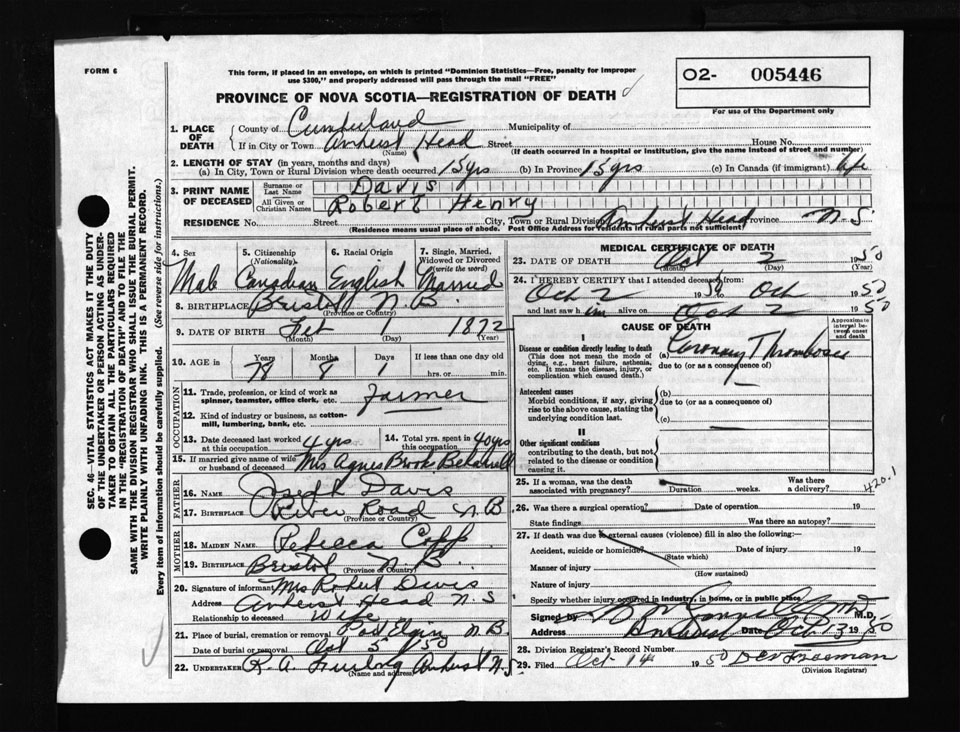 FORM 6
This form, if placed in an envelope, on which is printed "Dominion Statistics—Free, penalty for improper
use $300," and properly addressed will pass through the mail "FREE"
O2- 005446
For use of the Department only
PROVINCE OF NOVA SCOTIA—REGISTRATION OF DEATH
1. PLACE OF DEATH
County of Cumberland Municipality of
If in City or Town Amherst Head Street House No.
(Name) (If death occurred in a hospital or institution, give the name instead of street and number)
2. LENGTH OF STAY (in years, months and days)
(a) In City, Town or Rural Division where death occurred 15yrs (b) In Province 15yrs (c) In Canada (if immigrant) life
3. PRINT NAME OF DECEASED
Surname or Last Name Davis
All Given or Christian Names Robert Henry
RESIDENCE No. Street City, Town or Rural Division Amherst Head Province N.S
(Residence means usual place of abode. Post Office Address for residents in rural parts not sufficient)
4. Sex 5. Citizenship (Nationality) 6. Racial Origin 7. Single, Married, Widowed or Divorced (write the word)
Male Canadian English Married
8. BIRTHPLACE Bristol N.B.
(Province or Country)
9. DATE OF BIRTH Feb 1 1872
(Month) (Day) (Year)
10. AGE in Years Months Days If less than one day old
78 8 1 hrs. or min.
OCCUPATION
11. Trade, profession, or kind of work as
spinner, teamster, office clerk, etc. Farmer
12. Kind of industry or business, as cotton-
mill, lumbering, bank, etc.
13. Date deceased last worked at this occupation 4 yrs 14. Total yrs. spent in this occupation 40 yrs
15. If married give name of wife or husband of deceased Mrs Agnes Brook
FATHER
16. NAME Joseph Davis
17. BIRTHPLACE River Road N.B
(Province or Country)
MOTHER
18. MAIDEN NAME Rebecca Copp
19. BIRTHPLACE Bristol N.B.
(Province or Country)
20. Signature of informant Mrs Robert Davis
Address Amherst Head N.S
Relationship to deceased Wife
21. Place of burial, cremation or removal Port Elgin N.B.
Date of burial or removal Oct 5 1950
22. UNDERTAKER R. A. Furlong Amherst N.S.
(Name and address)
MEDICAL CERTIFICATE OF DEATH
23. DATE OF DEATH Oct 2 1950
(Month) (Day) (Year)
24. I HEREBY CERTIFY that I attended deceased from
Oct 2 1950 to Oct 1950
and last saw him alive on Oct 2 1950
CAUSE OF DEATH
Approximate interval between onset and death
I
Disease or condition directly leading to death
(This does not mean the mode of
dying, e.g., heart failure, asthenia,
etc. It means the disease, injury, or
complication which caused death.)
(a) Coronary Thrombosis
due to (or as a consequence of)
Antecedent causes
Morbid conditions, if any, giving
rise to the above cause, stating the
underlying condition last.
(b)
due to (or as a consequence of)
(c)
II
Other significant conditions
contributing to the death, but not
related to the disease or condition
causing it.
25. If a woman, was the death associated with pregnancy? Duration weeks. Was there a delivery?
420.1
26. Was there a surgical operation? Date of operation 19
State findings Was there an autopsy?
27. If death was due to external causes (violence) fill in also the following:—
Accident, suicide or homicide? Date of injury 19
(State which)
Manner of injury
(How sustained)
Nature of injury
Specify whether injury occurred in industry, in home, or in public place
Signed by M.D.
Address Amherst Date Oct. 13 1950
28. Division Registrar's Record Number
29. Filed Oct 14 1950 Freeman
(Division Registrar)
SEC. 46—VITAL STATISTICS ACT MAKES IT THE DUTY
OF THE UNDERTAKER OR PERSON ACTING AS UNDER-
TAKER TO OBTAIN ALL THE PARTICULARS REQUIRED
IN THE "REGISTRATION OF DEATH" AND TO FILE THE
SAME WITH THE DIVISION REGISTRAR WHO SHALL ISSUE THE BURIAL PERMIT.
WRITE PLAINLY WITH UNFADING INK. THIS IS A PERMANENT RECORD.
Every item of information should be carefully supplied. (See reverse side for instructions.)